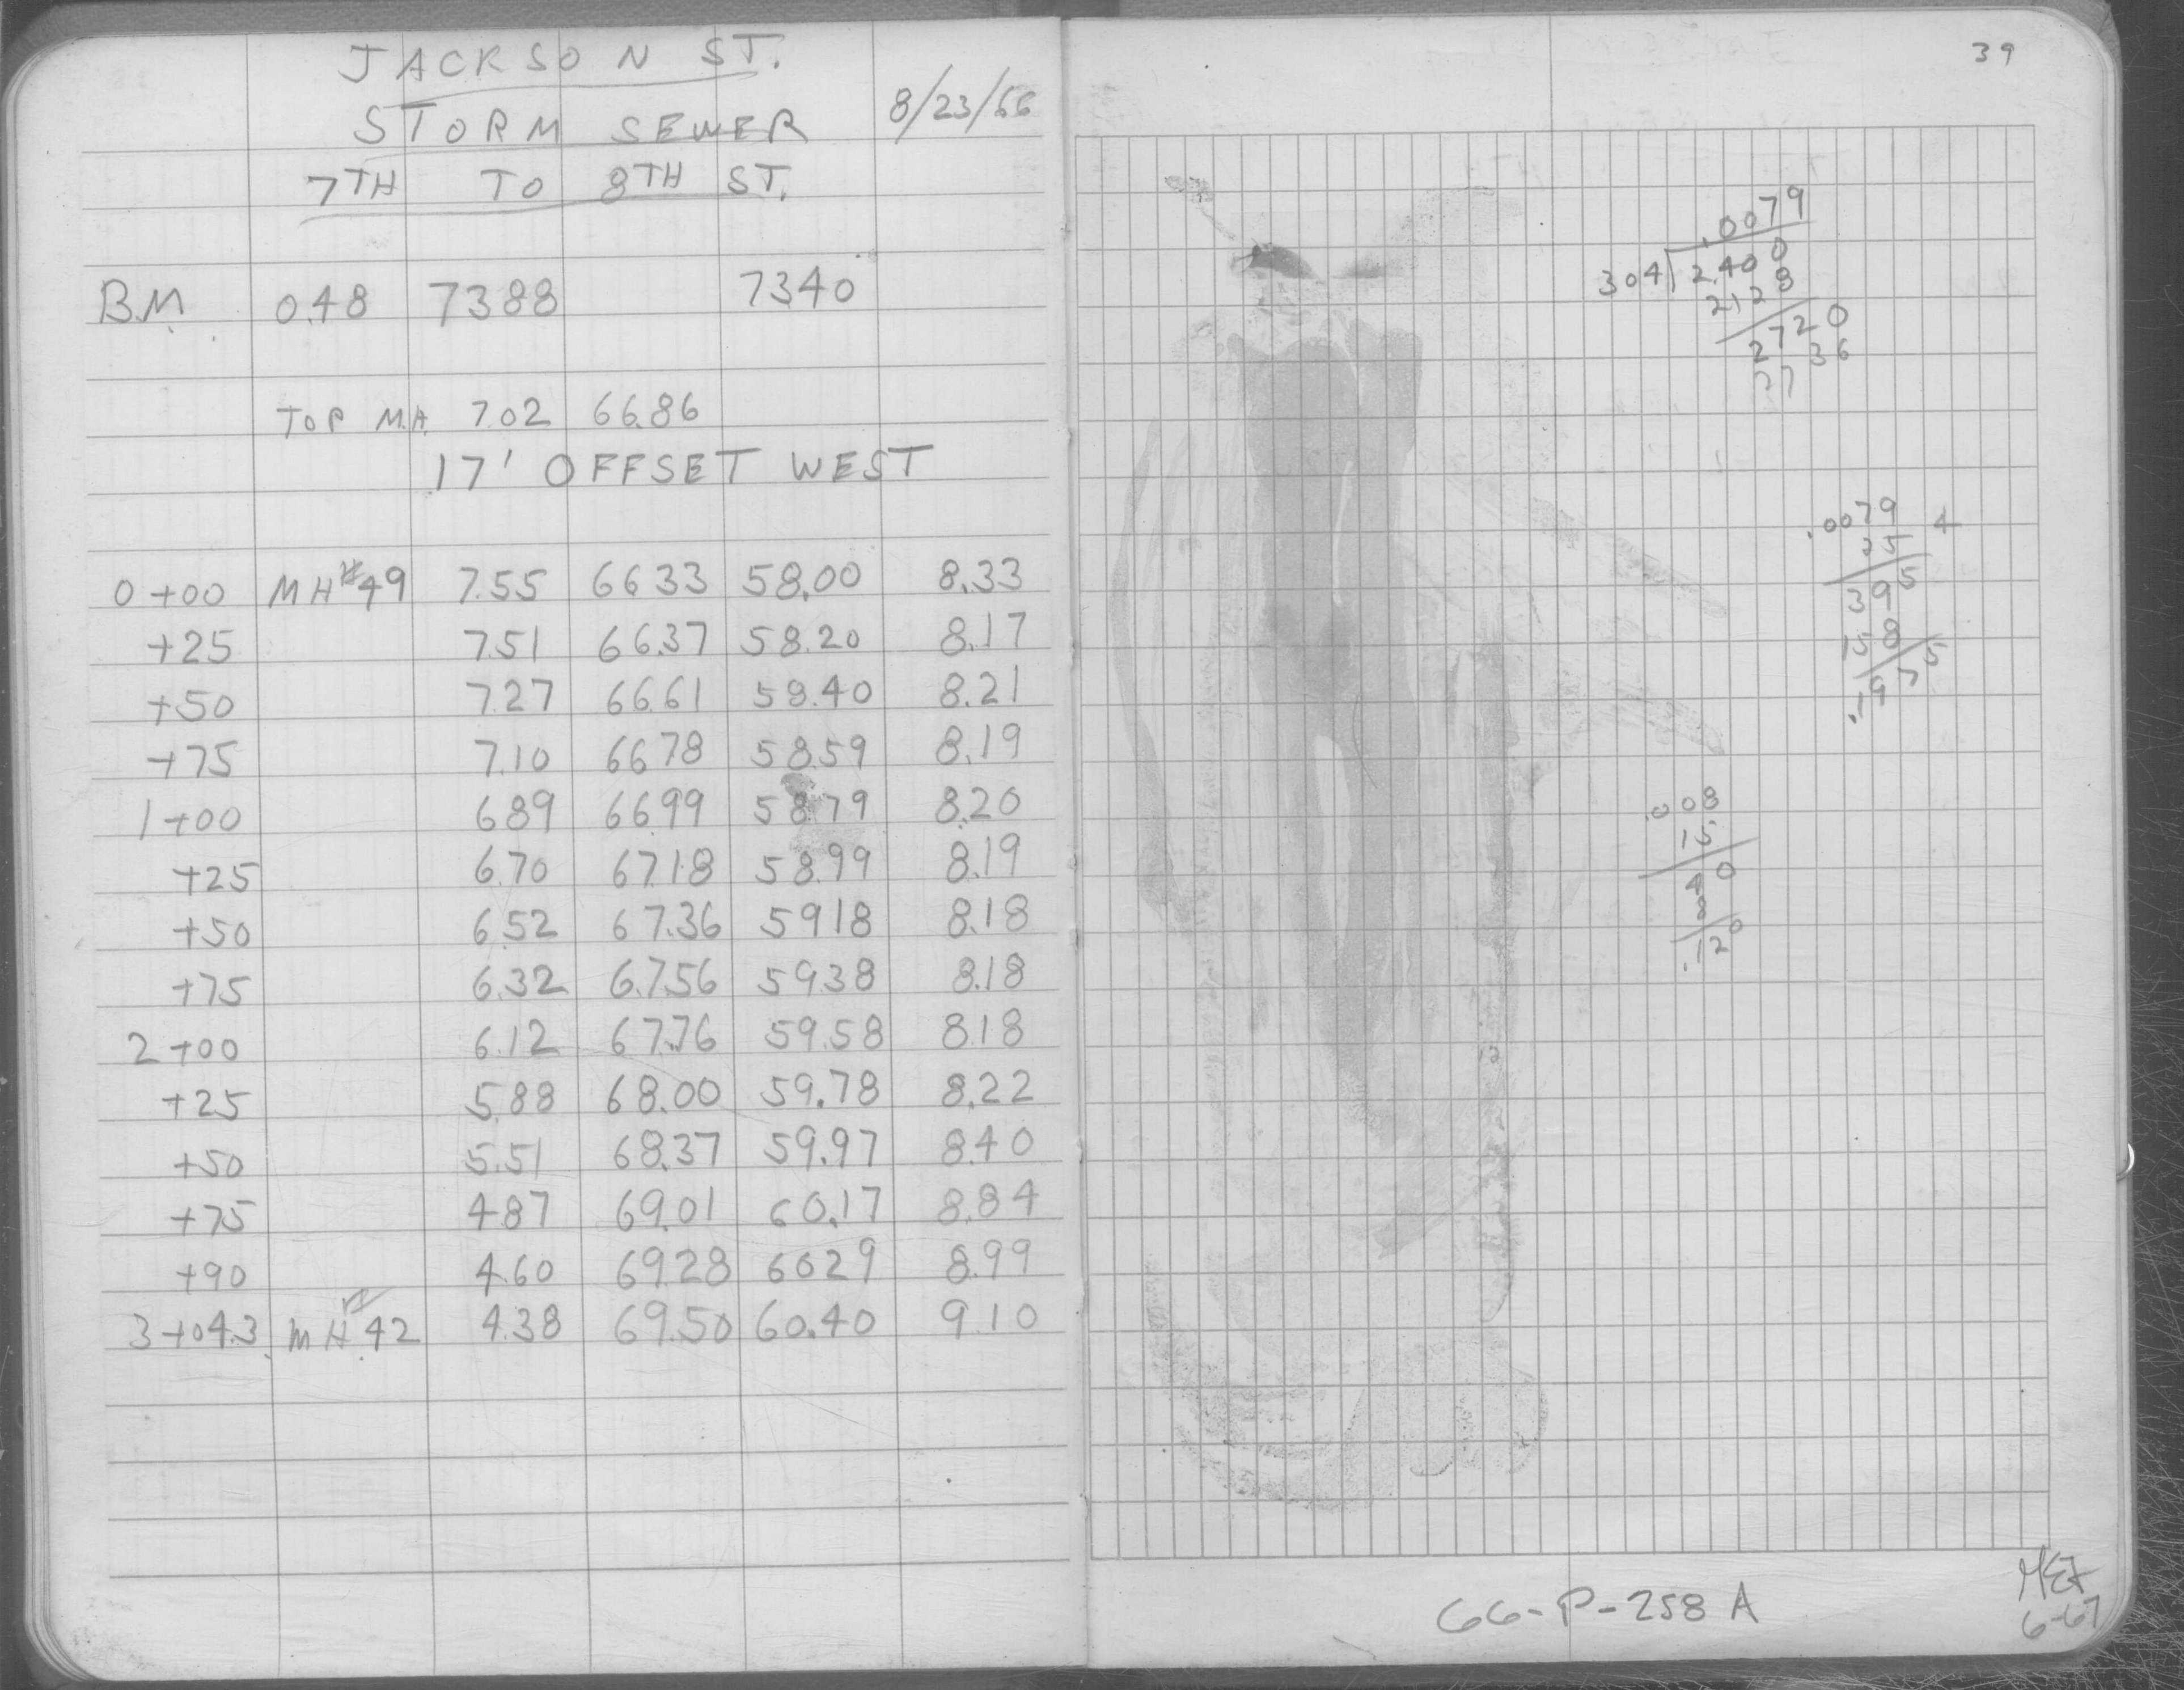 JACKSON ST.
STORM SEWER 8/23/66
7TH TO 8TH ST.
B.M. 0.48 7388 7340
TOP M.H. 7.02 66.86
17' OFFSET WEST
0+00 MH#49 7.55 6633 58.00 8.33
+25 7.51 66.37 58.20 8.17
+50 7.27 66.61 58.40 8.21
+75 7.10 6678 58.59 8.19
1+00 689 6699 5879 8.20
+25 6.70 67.18 58.99 8.19
+50 6.52 67.36 5918 8.18
+75 6.32 67.56 5938 8.18
2+00 6.12 67.76 59.58 818
+25 5.88 68.00 59.78 8.22
+50 5.51 68.37 59.97 8.40
+75 4.87 69.01 60.17 8.84
+90 4.60 69.28 6029 8.99
3+04.3 MH#42 4.38 69.50 60.40 9.10
39
.0079
304 2.400 0
212 8
2720
36
.0079 4
25
395
158
.1975
.008
15
40
8
.120
66-P-258 A
6-67